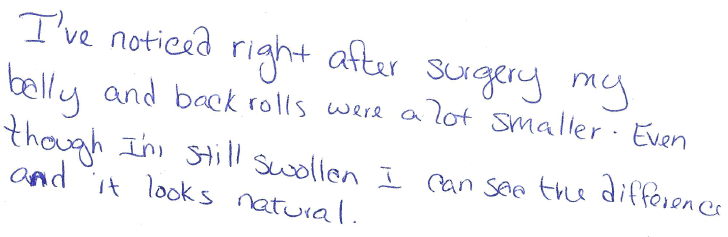 I've noticed right after surgery my
belly and back rolls were a lot smaller. Even
though I'm still swollen I can see the difference
and it looks natural.